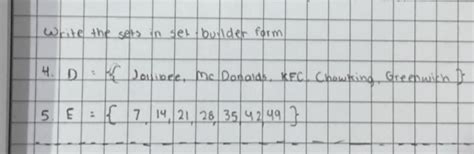 Write the sets in set-builder form
4. D = { Jollibee, Mc Donalds, KFC, Chowking, Greenwich }
5. E = { 7, 14, 21, 28, 35, 42, 49 }